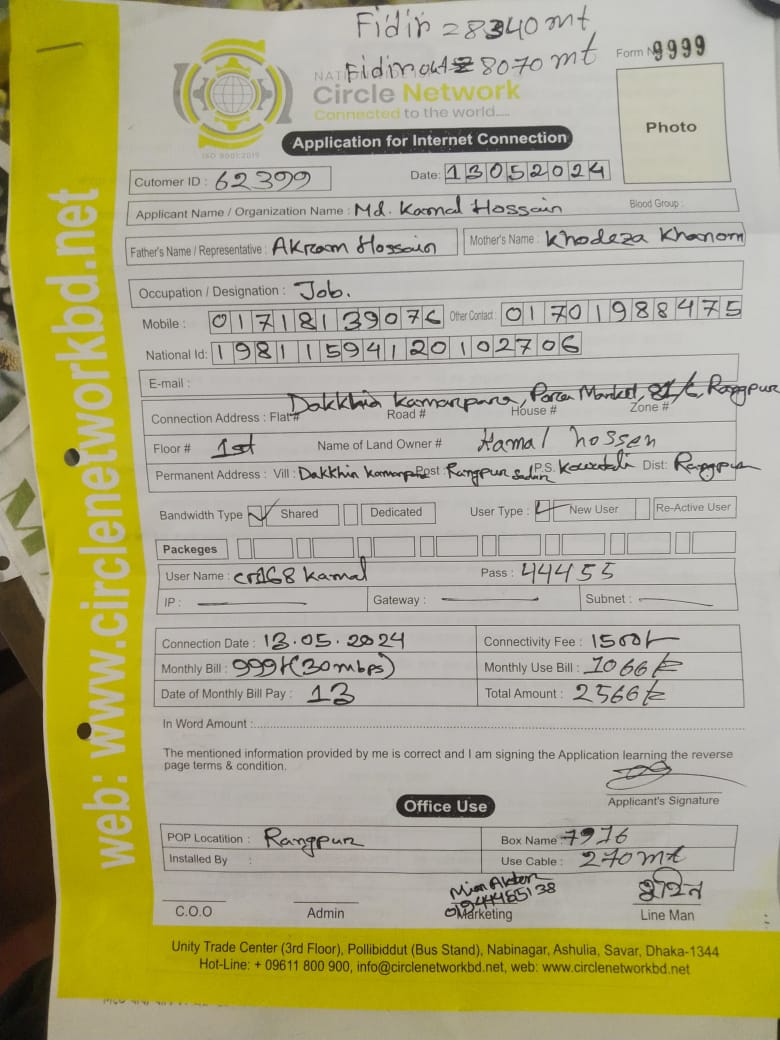 Fidir = 8340 mt
Fidir out = 8070 mt
Form No 9999
Circle Network
Connected to the world....
ISO 9001:2015
Application for Internet Connection
Photo
Cutomer ID : 62399
Date: 13052024
Applicant Name / Organization Name : Md. Kamal Hossain Blood Group :
Father's Name / Representative : Akram Hossain Mother's Name : Khodeza Khanom
Occupation / Designation : Job.
Mobile : 01718139076 Other Contact : 01701988475
National Id: 19811594120102706
E-mail :
Dakkhin Kamarpara, Market, Rangpur
Connection Address : Flat# Road # House # Zone #
Floor # 1st Name of Land Owner # Kamal hossen
Permanent Address : Vill : Dakkhin Kamarpara Post : Rangpur Sadar P.S. Kowtali Dist: Rangpur
Bandwidth Type Shared Dedicated User Type : New User Re-Active User
Packeges
User Name : cr168 kamal Pass : 44455
IP : Gateway : Subnet :
Connection Date : 13.05.2024 Connectivity Fee : 1500/-
Monthly Bill : 999/-(30mbps) Monthly Use Bill : 1066/=
Date of Monthly Bill Pay : 13 Total Amount : 2566/=
In Word Amount :
The mentioned information provided by me is correct and I am signing the Application learning the reverse
page terms & condition.
Applicant's Signature
Office Use
POP Locatition : Rangpur Box Name : 7976
Installed By : Use Cable : 270mt
Akter
01944465138
C.O.O Admin Marketing Line Man
Unity Trade Center (3rd Floor), Pollibiddut (Bus Stand), Nabinagar, Ashulia, Savar, Dhaka-1344
Hot-Line: + 09611 800 900, info@circlenetworkbd.net, web: www.circlenetworkbd.net
web: www.circlenetworkbd.net